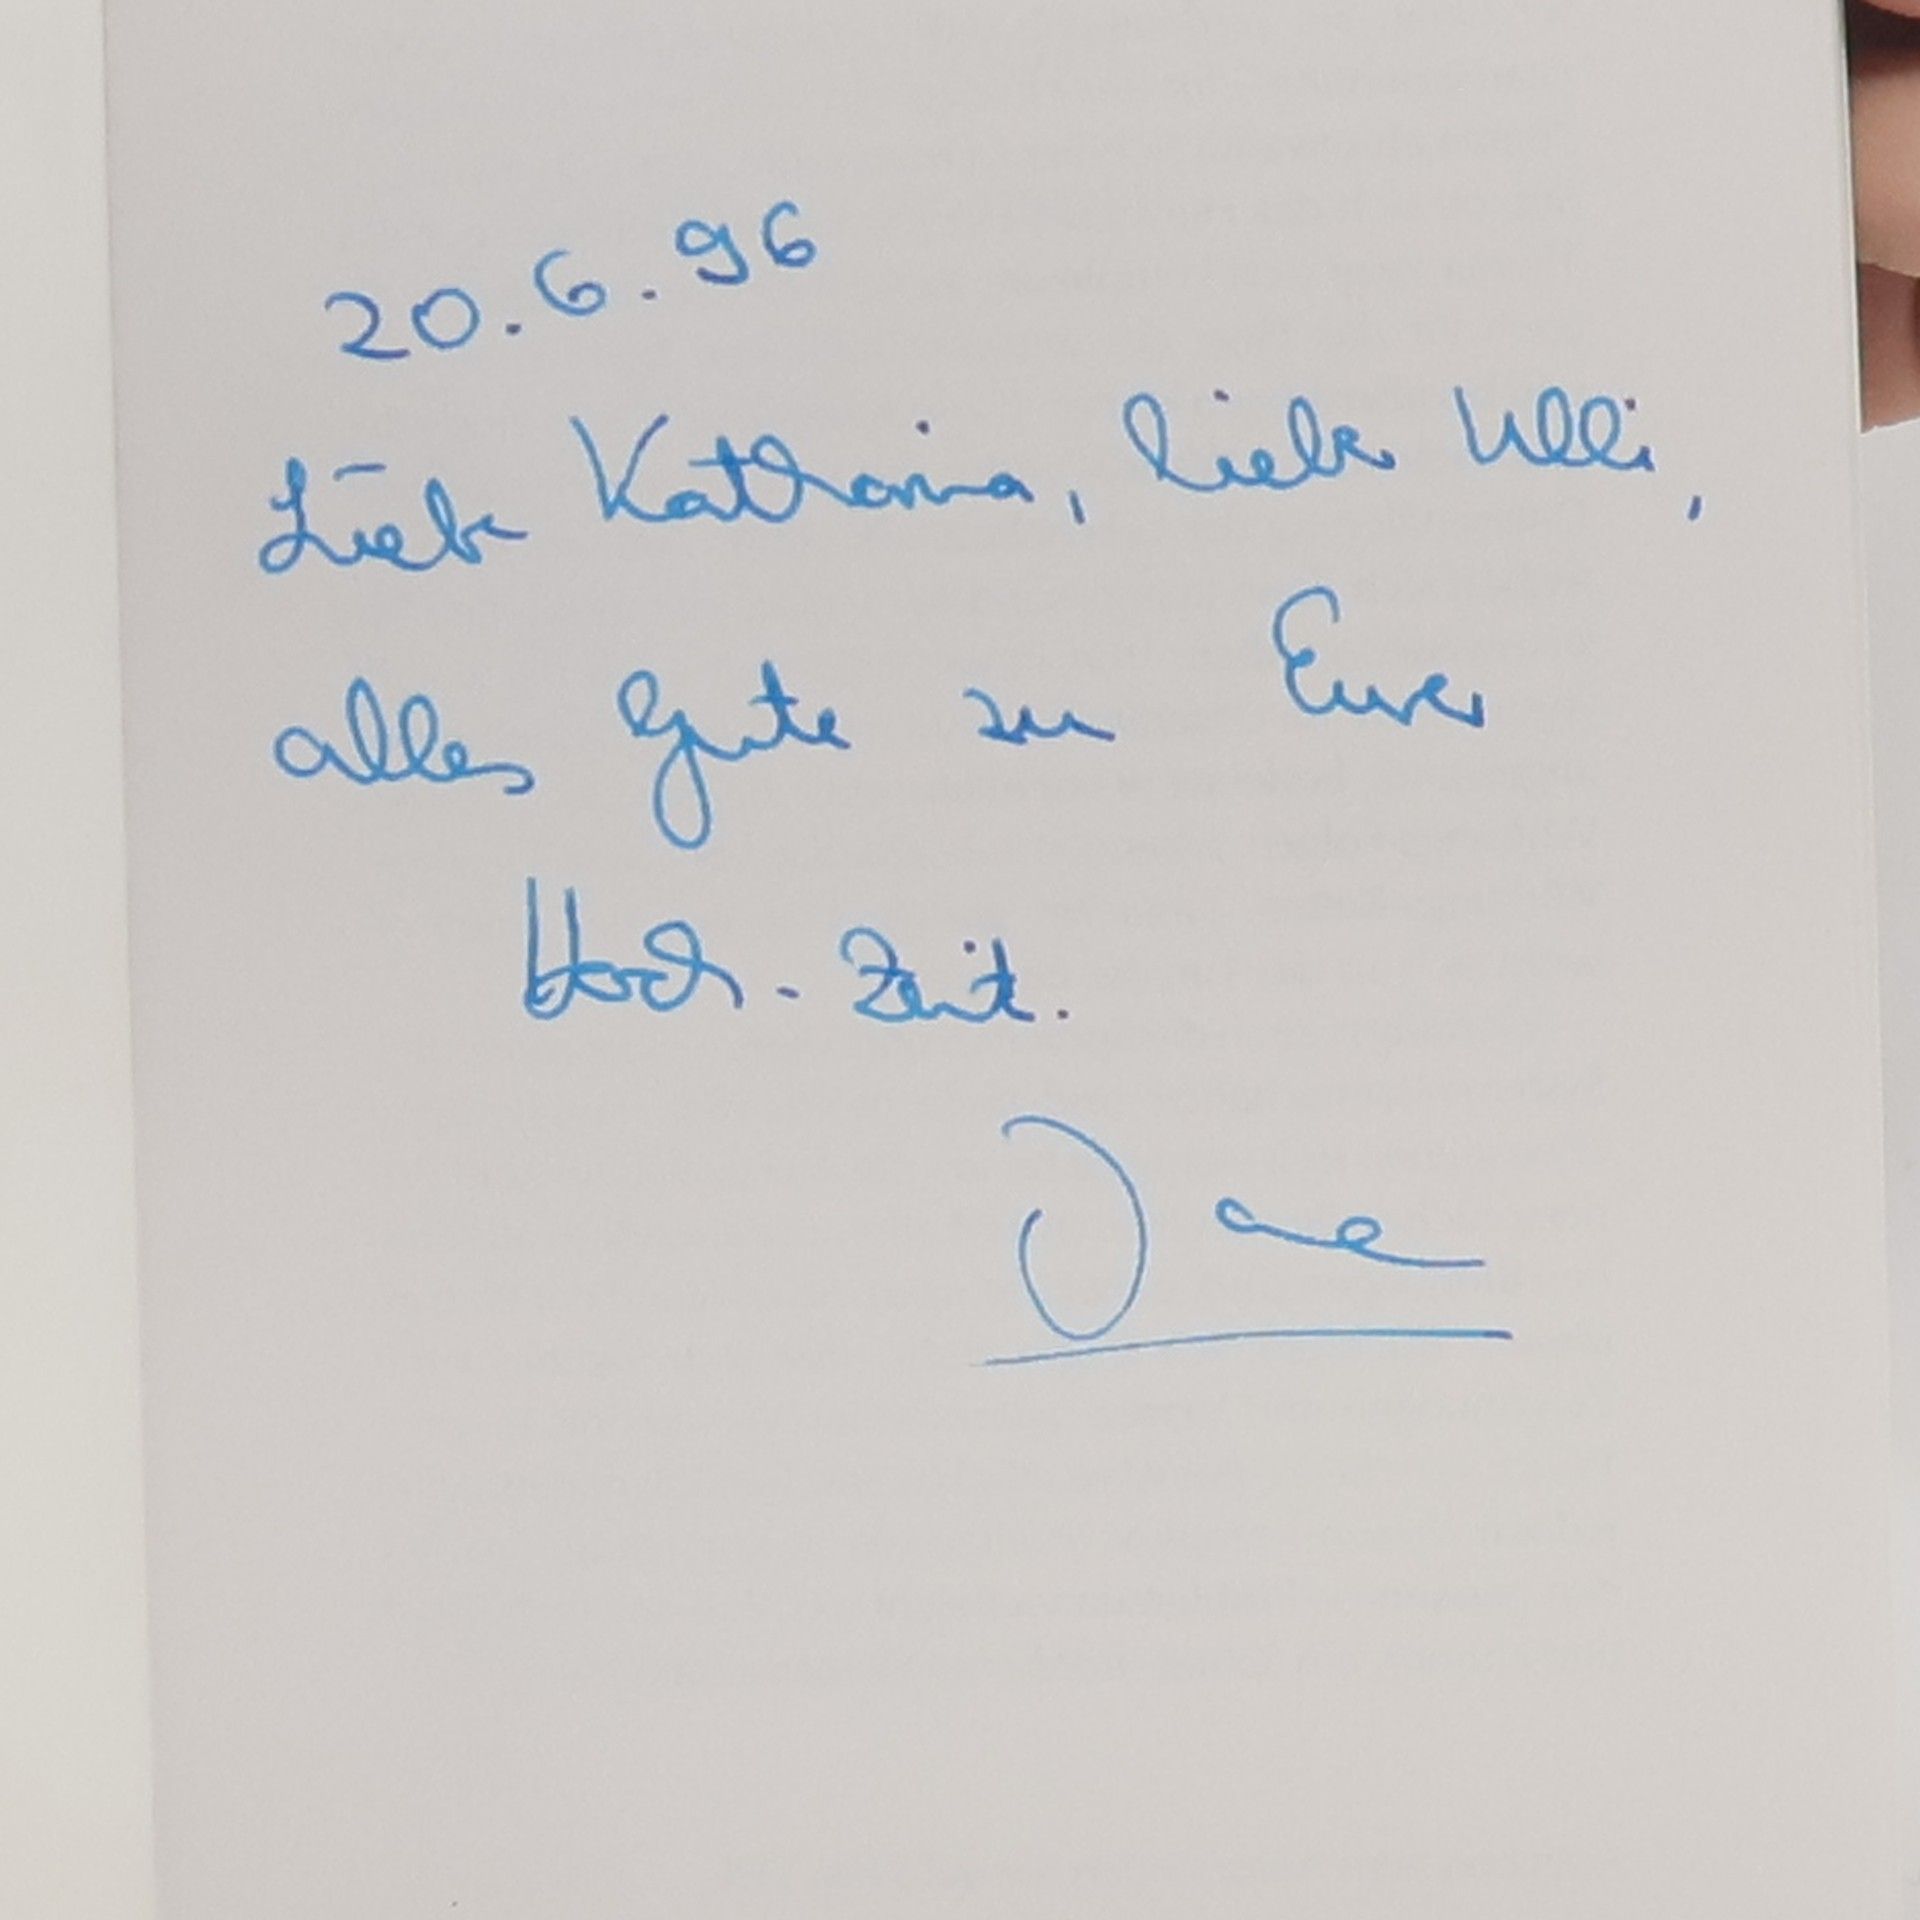 20.6.96
Liebe Katharina, lieber Ulli,
alles Gute zu Eurer
Hoch-Zeit.